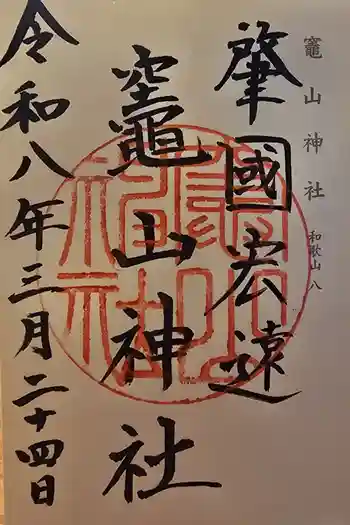 竈山神社 和歌山 八
肇國宏遠
竈山神社
令和八年三月二十四日
竈山神社